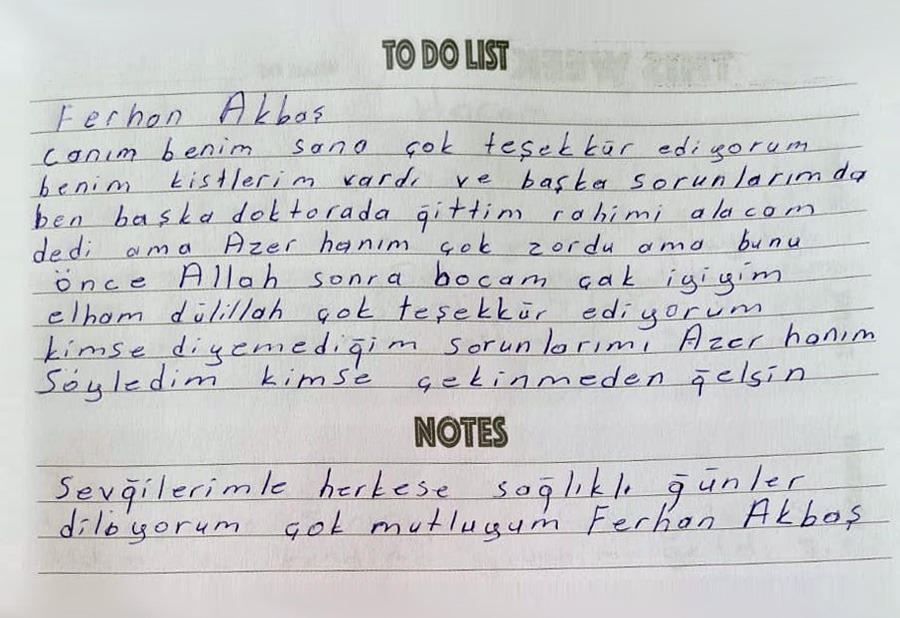 TO DO LIST
Ferhan Akbaş
canım benim sana çok teşekkür ediyorum
benim kistlerim vardı ve başka sorunlarımda
ben başka doktorada ğittim rahimi alacam
dedi ama Azer hanım çok zordu ama bunu
önce Allah sonra hocam çak iyiyim
elham dülillah çok teşekkür ediyorum
kimse diyemediğim sorunlarımı Azer hanım
Söyledim kimse çekinmeden ğelsin
NOTES
Sevğilerimle herkese sağlıklı ğünler
diliyorum çok mutluyum Ferhan Akbaş